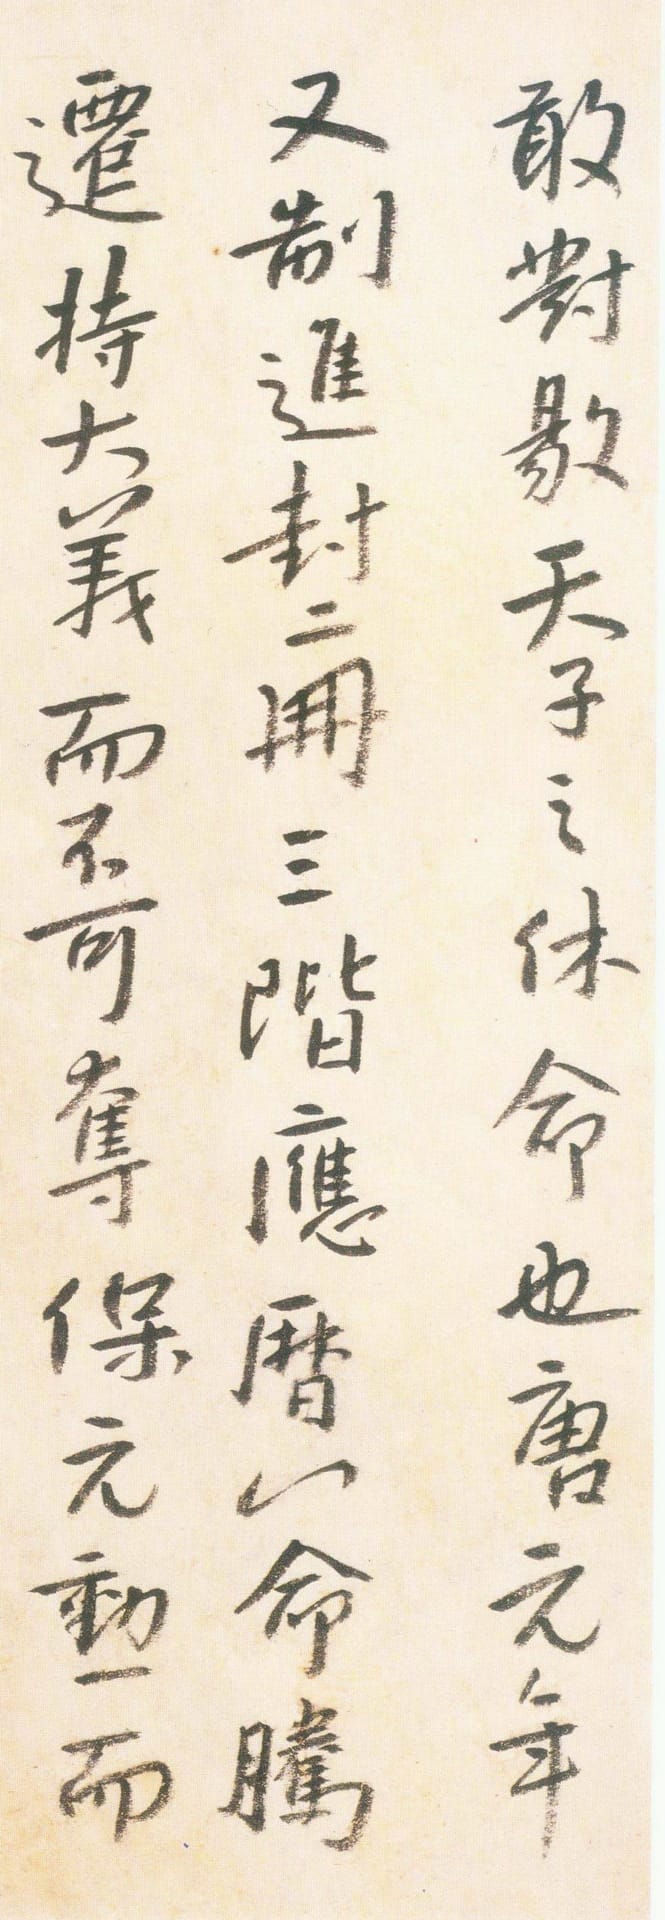 敢對敭天子之休命也唐元年
又制進封二冊三階應曆八命騰
遷持大義而不可奪保元勳而